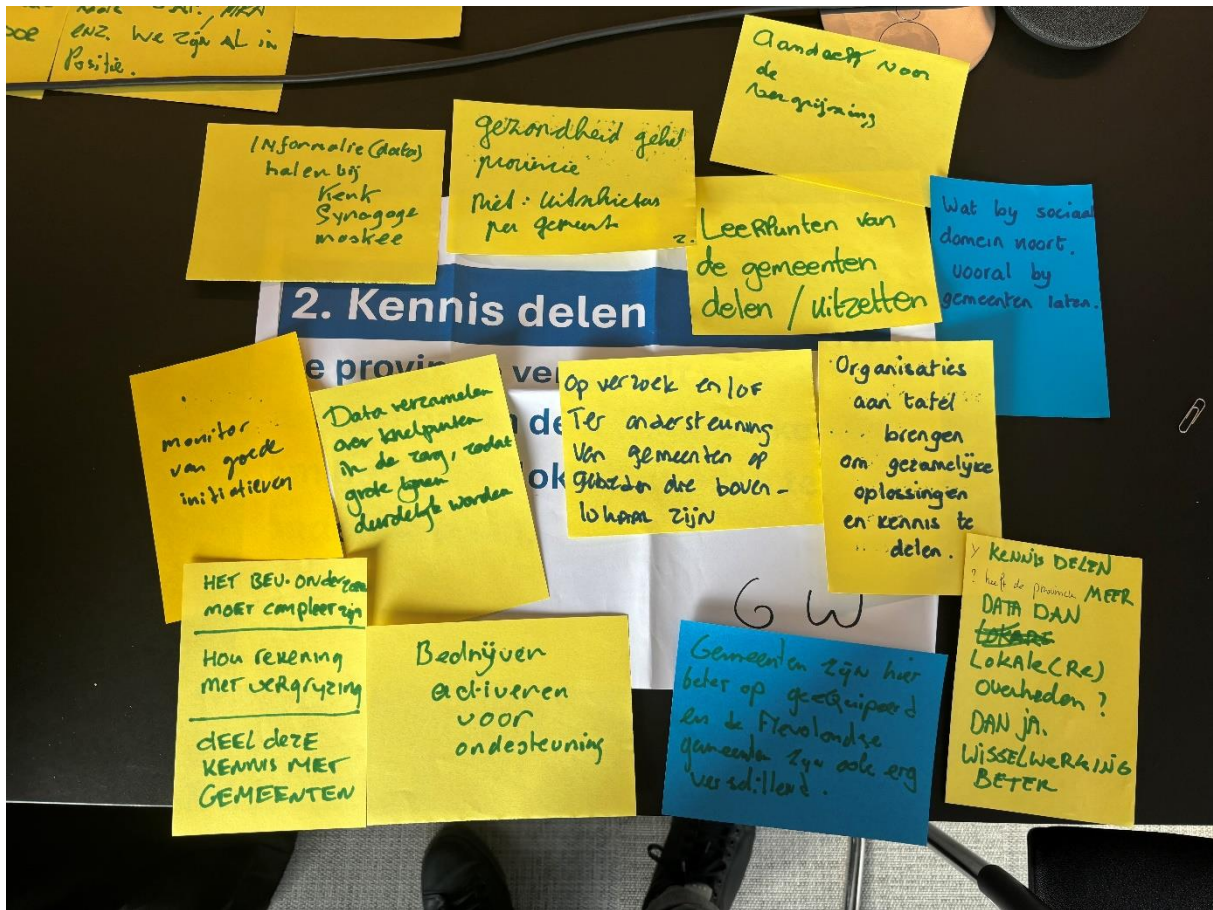 enz. We zijn AL in
Positie.
Aandacht voor
de
vergrijzing
INformatie (data)
halen bij
Kerk
Synagoge
moskee
gezondheid gehel
provincie
Niet: uitschieters
per gemeent
2.
Leerpunten van
de gemeenten
delen / uitzetten
Wat by sociaal
domein hoort.
vooral by
gemeenten laten.
2. Kennis delen
e provin
ve
de
ok
monitor
van goede
initiatieven
Data verzamelen
over knelpunten
in de zorg, zodat
grote lijnen
duidelijk worden
Op verzoek en/of
Ter ondersteuning
van gemeenten op
gebieden die boven-
lokaal zijn
Organisaties
aan tafel
brengen
om gezamelijke
oplossingen
en kennis te
delen.
HET BEV. onderzoek
moet compleet zijn
Hou rekening
met vergryzing
dEEL deze
KENNIS MET
GEMEENTEN
Bedrijven
activeren
voor
ondesteuning
G W
Gemeenten zijn hier
beter op geequipeerd
en de Flevolandse
gemeenten zijn ook erg
verschillend.
KENNIS DELEN
? heeft de provincie MEER
DATA DAN
LOKALE(RE)
Overheden ?
DAN JA.
WISSELWERKING
BETER